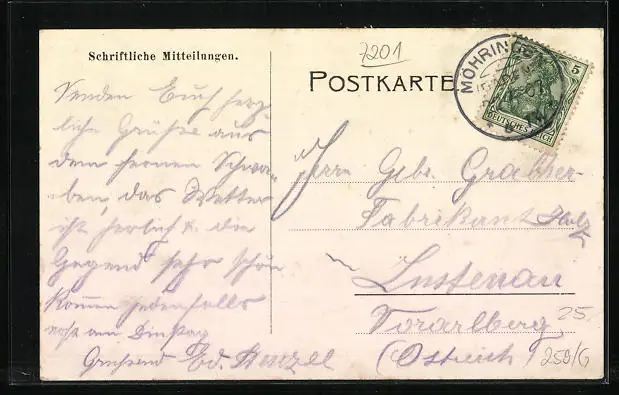 Schriftliche Mitteilungen.
7201
POSTKARTE
MÖHRINGEN
5
DEUTSCHES REICH
Senden Euch herz-
liche Grüße aus
dem fernen Schwa-
ben, das Wetter
ist herlich & die
Gegend sehr schön
Kommen jedenfalls
erst am Dinstag
Grüssend Ed. Henzel
Herrn Gebr. Grabher
Fabrikant Holz
Lustenau
Vorarlberg
(Östreich)
25.
259/6